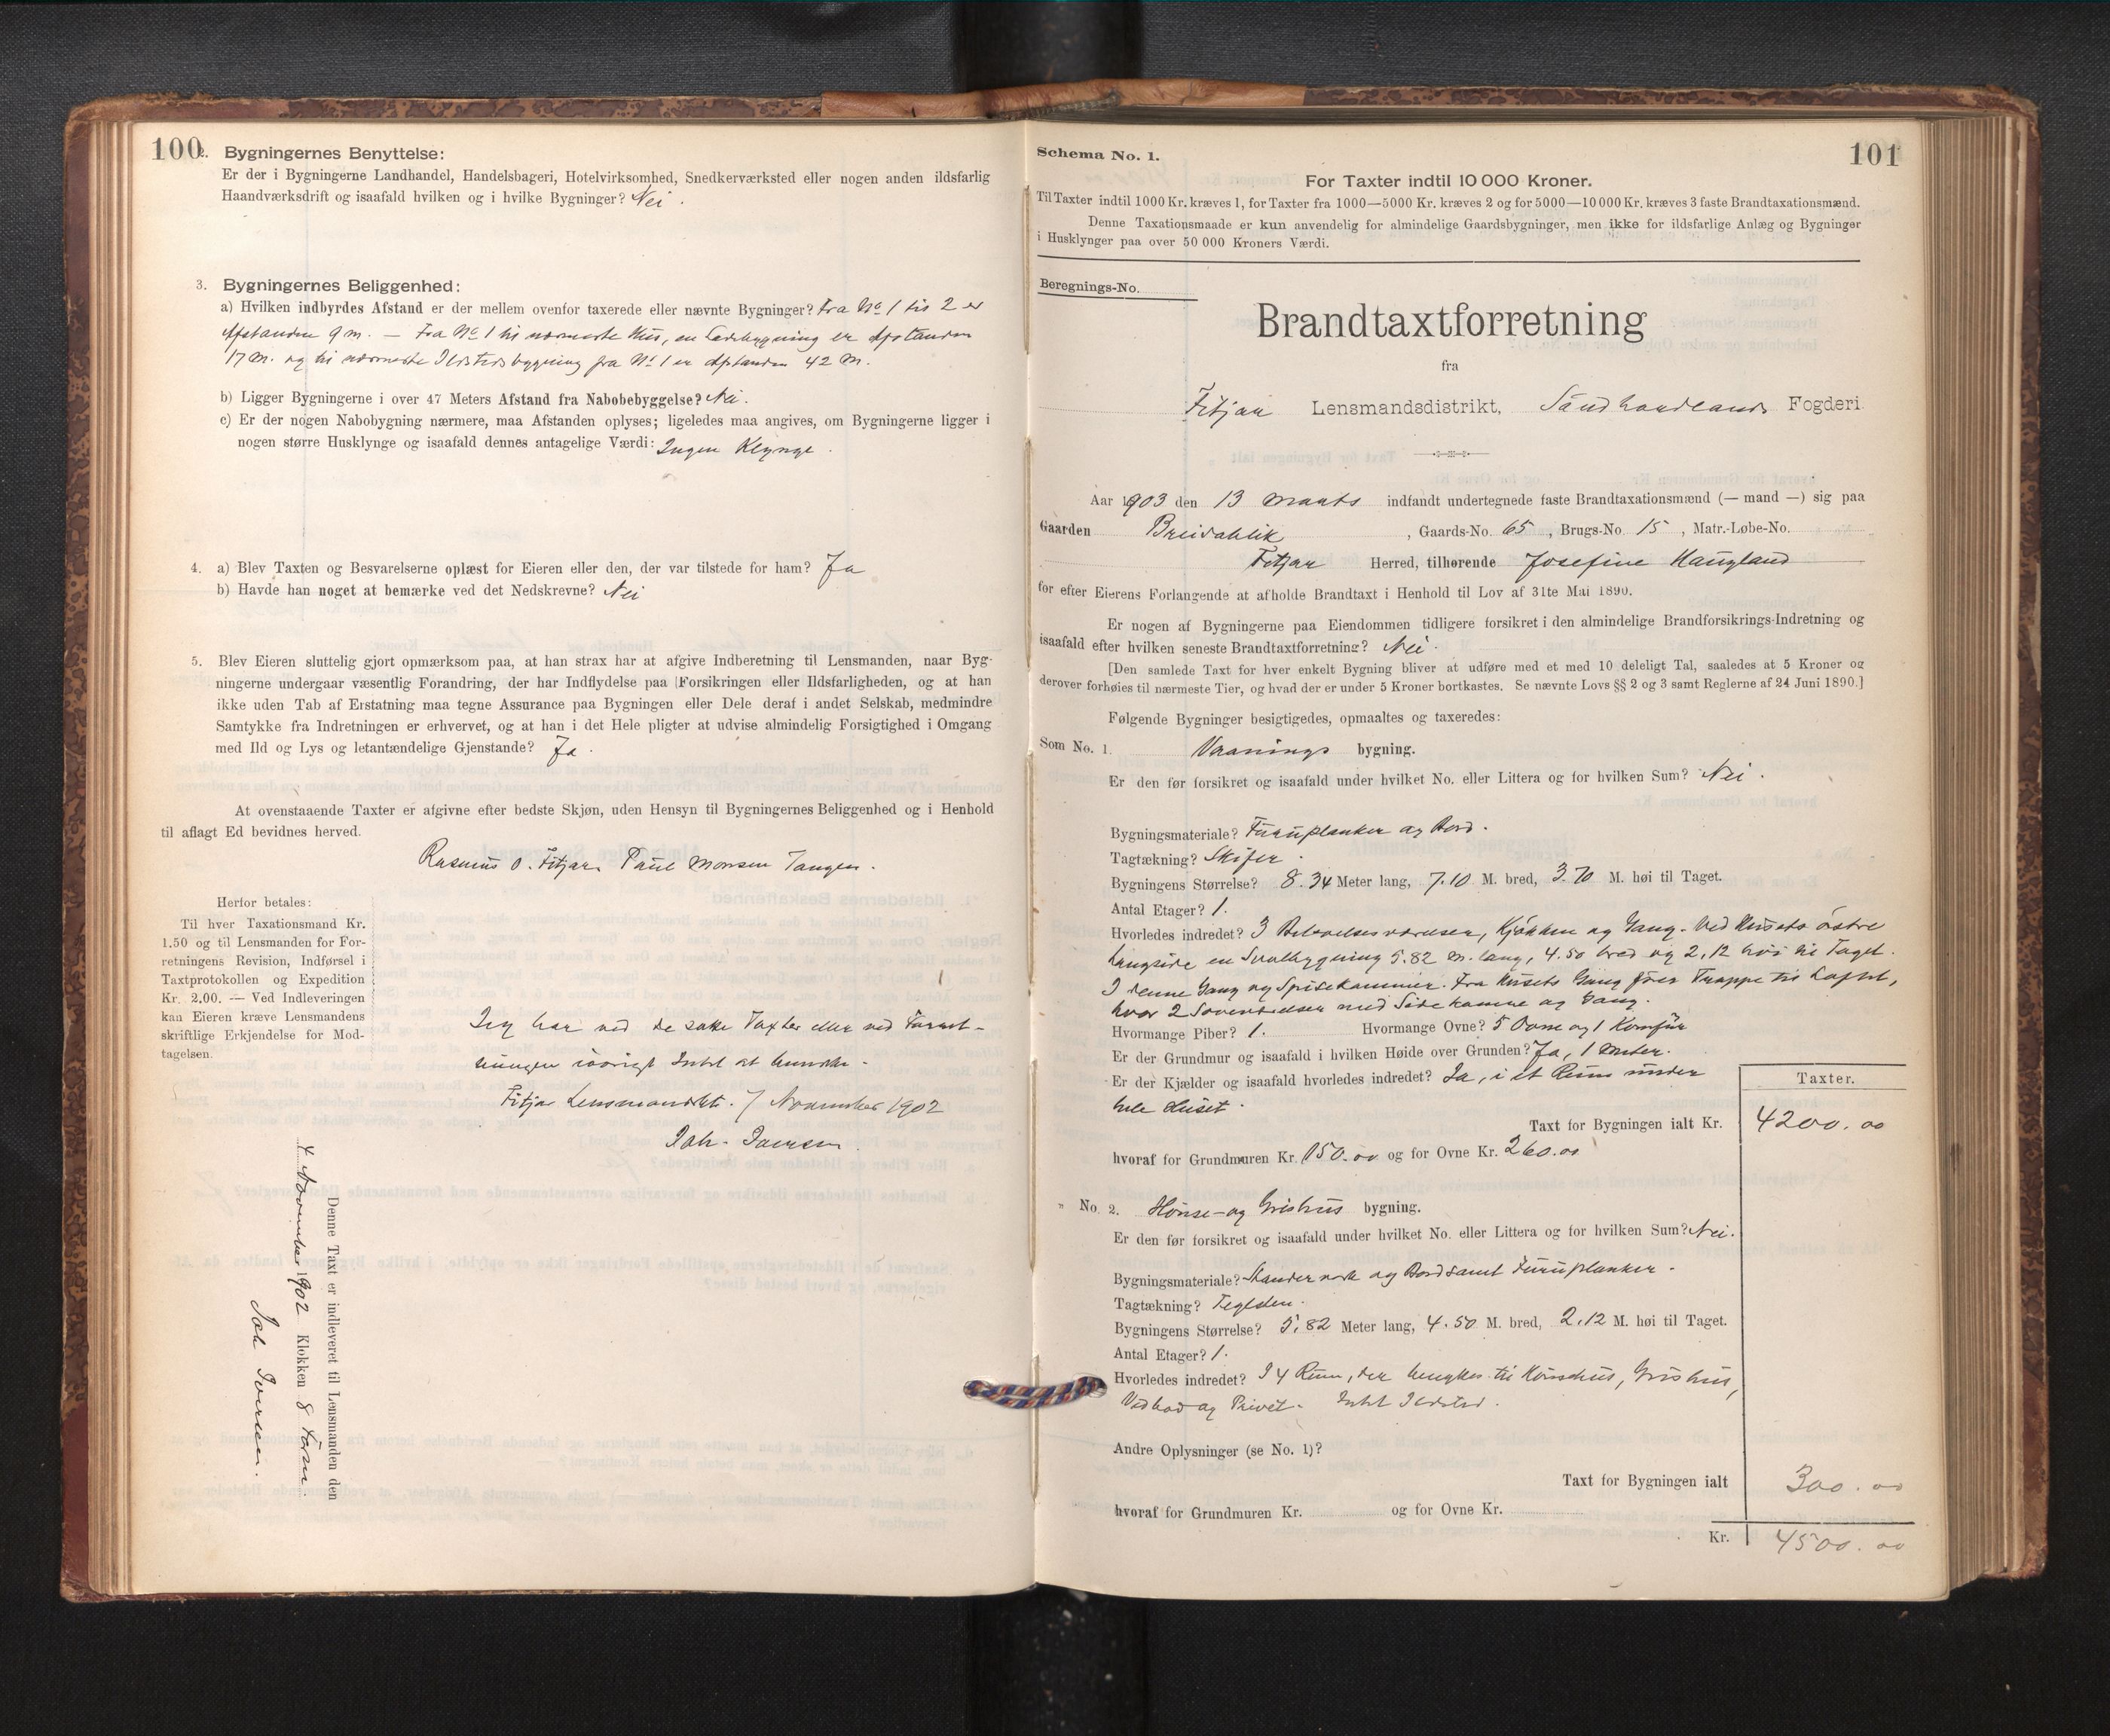 100
2. Bygningernes Benyttelse:
Er der i Bygningerne Landhandel, Handelsbageri, Hotelvirksomhed, Snedkerværksted eller nogen anden ildsfarlig
Haandværksdrift og isaafald hvilken og i hvilke Bygninger? Nei.
3. Bygningernes Beliggenhed:
a) Hvilken indbyrdes Afstand er der mellem ovenfor taxerede eller nævnte Bygninger? Fra No 1 til 2 er
Afstanden 9 m. — Fra No 1 til nærmeste Hus, en Ladebygning er Afstanden
17 M. og til nærmeste Ildstedsbygning fra No 1 er Afstanden 42 M.
b) Ligger Bygningerne i over 47 Meters Afstand fra Nabobebyggelse? Nei.
c) Er der nogen Nabobygning nærmere, maa Afstanden oplyses; ligeledes maa angives, om Bygningerne ligger i
nogen større Husklynge og isaafald dennes antagelige Værdi: Ingen Klynge.
4. a) Blev Taxten og Besvarelserne oplæst for Eieren eller den, der var tilstede for ham? Ja
b) Havde han noget at bemærke ved det Nedskrevne? Nei
5. Blev Eieren sluttelig gjort opmærksom paa, at han strax har at afgive Indberetning til Lensmanden, naar Byg-
ningerne undergaar væsentlig Forandring, der har Indflydelse paa Forsikringen eller Ildsfarligheden, og at han
ikke uden Tab af Erstatning maa tegne Assurance paa Bygningen eller Dele deraf i andet Selskab, medmindre
Samtykke fra Indretningen er erhvervet, og at han i det Hele pligter at udvise almindelig Forsigtighed i Omgang
med Ild og Lys og letantændelige Gjenstande? Ja.
At ovenstaaende Taxter er afgivne efter bedste Skjøn, uden Hensyn til Bygningernes Beliggenhed og i Henhold
til aflagt Ed bevidnes herved.
Rasmus O. Fitjar. Paul Monsen Tangen.
Herfor betales:
Til hver Taxationsmand Kr.
1.50 og til Lensmanden for For-
retningens Revision, Indførsel i
Taxtprotokollen og Expedition
Kr. 2.00. — Ved Indleveringen
kan Eieren kræve Lensmandens
skriftlige Erkjendelse for Mod-
tagelsen.
Jeg har ved de satte Taxter eller ved Forret-
ningen iøvrigt Intet at bemærke.
Fitjar Lensmandskt. 7 November 1902
Joh. Iversen
Denne Taxt er indleveret til Lensmanden den
4 November 1902 Klokken 8 Form.
Joh Iversen.
101
Schema No. 1.
For Taxter indtil 10 000 Kroner.
Til Taxter indtil 1000 Kr. kræves 1, for Taxter fra 1000—5000 Kr. kræves 2 og for 5000—10 000 Kr. kræves 3 faste Brandtaxationsmænd.
Denne Taxationsmaade er kun anvendelig for almindelige Gaardsbygninger, men ikke for ildsfarlige Anlæg og Bygninger
i Husklynger paa over 50 000 Kroners Værdi.
Beregnings-No.
Brandtaxtforretning
fra
Fitjar Lensmandsdistrikt, Søndhordlands Fogderi
Aar 1903 den 13 Marts indfandt undertegnede faste Brandtaxationsmænd (— mand —) sig paa
Gaarden Breidablik, Gaards-No. 65, Brugs-No. 15, Matr.-Løbe-No.
Fitjar Herred, tilhørende Josefine Haugland
for efter Eierens Forlangende at afholde Brandtaxt i Henhold til Lov af 31te Mai 1890.
Er nogen af Bygningerne paa Eiendommen tidligere forsikret i den almindelige Brandforsikrings-Indretning og
isaafald efter hvilken seneste Brandtaxtforretning? Nei.
[Den samlede Taxt for hver enkelt Bygning bliver at udføre med et med 10 deleligt Tal, saaledes at 5 Kroner og
derover forhøies til nærmeste Tier, og hvad der er under 5 Kroner bortkastes. Se nævnte Lovs §§ 2 og 3 samt Reglerne af 24 Juni 1890.]
Følgende Bygninger besigtigedes, opmaaltes og taxeredes:
Som No. 1. Vaanings bygning.
Er den før forsikret og isaafald under hvilket No. eller Littera og for hvilken Sum? Nei.
Bygningsmateriale? Furuplanker og Bord.
Tagtækning? Skifer.
Bygningens Størrelse? 8.34 Meter lang, 7.10 M. bred, 3.70 M. høi til Taget.
Antal Etager? 1.
Hvorledes indredet? 3 Beboelsesværelser, Kjøkken og Gang. Ved Husets østre
Langside en Svalbygning 5.82 m. lang, 4.50 bred og 2,12 høi til Taget.
I denne Gang og Spisekammer. Fra Husets Gang fører Trappe til Loftet,
hvor 2 Soveværelser med Sidekamre og Gang.
Hvormange Piber? 1. Hvormange Ovne? 5 Ovne og 1 Komfür
Er der Grundmur og isaafald i hvilken Høide over Grunden? Ja, 1 Meter.
Er der Kjælder og isaafald hvorledes indredet? Ja, i et Rum under
hele Huset.
Taxter.
Taxt for Bygningen ialt Kr. 4200.00
hvoraf for Grundmuren Kr. 150.00 og for Ovne Kr. 260.00
" No. 2. Hønse- og Grishus bygning.
Er den før forsikret og isaafald under hvilket No. eller Littera og for hvilken Sum? Nei.
Bygningsmateriale? Standerverk og Bord samt Furuplanker.
Tagtækning? Teglsten.
Bygningens Størrelse? 5,82 Meter lang, 4.50 M. bred, 2.12 M. høi til Taget.
Antal Etager? 1.
Hvorledes indredet? I 4 Rum, der benyttes til Hønsehus, Grishus,
Vedbod og Privet. Intet Ildsted.
Andre Oplysninger (se No. 1)?
Taxt for Bygningen ialt 300.00
hvoraf for Grundmuren Kr. og for Ovne Kr.
Kr. 4500.00